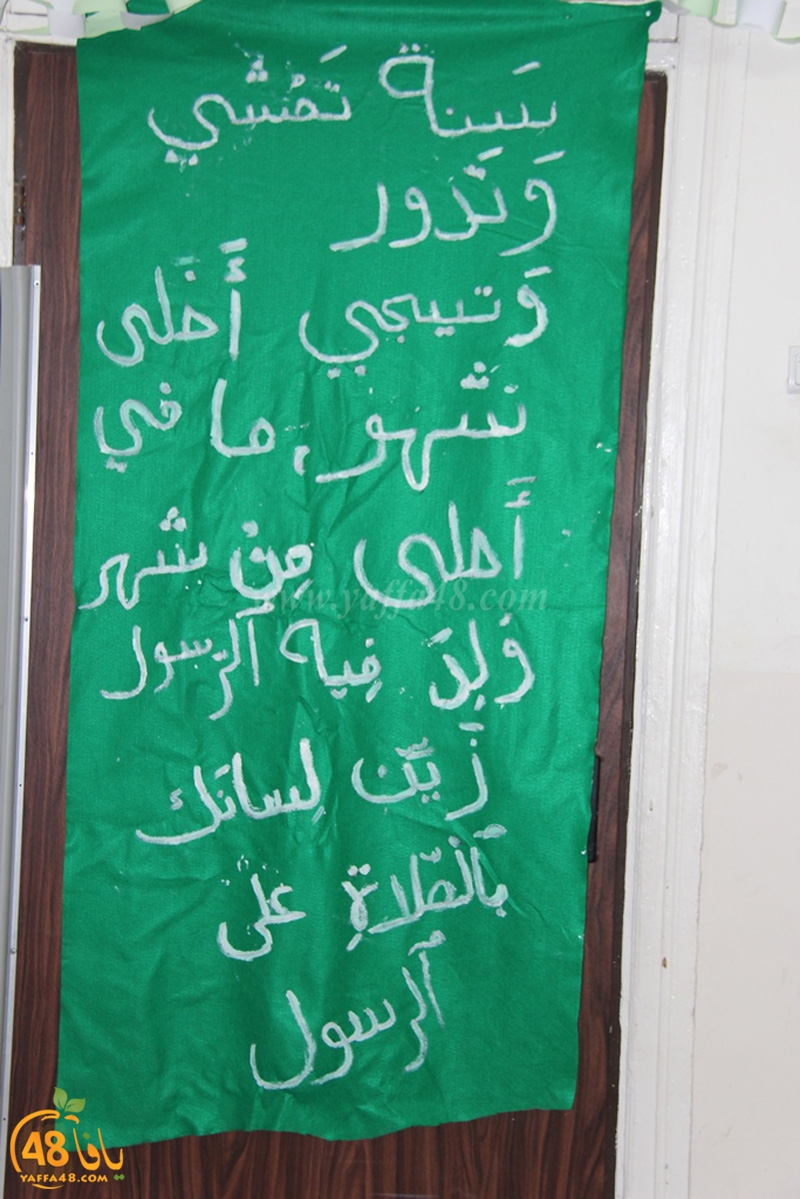 سَينة تَمْشي
وَتَدور
وَتيجي أَحَلى
شَهور، ما في
أَحلى مِنْ شَهر
وُلِدَ فيه الرَسول
زَيّن لِسانَك
بالصّلاةِ على
الرسول
www.yaffa48.com
48 يافا
YAFFA48.COM